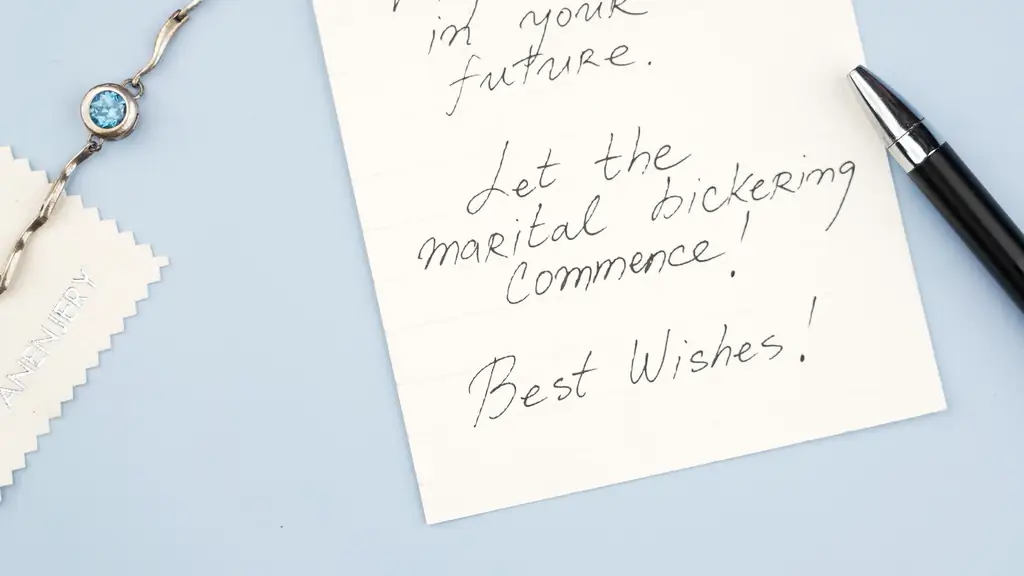 in your
future.
Let the
marital bickering
Commence!
Best Wishes!
ANENJERY